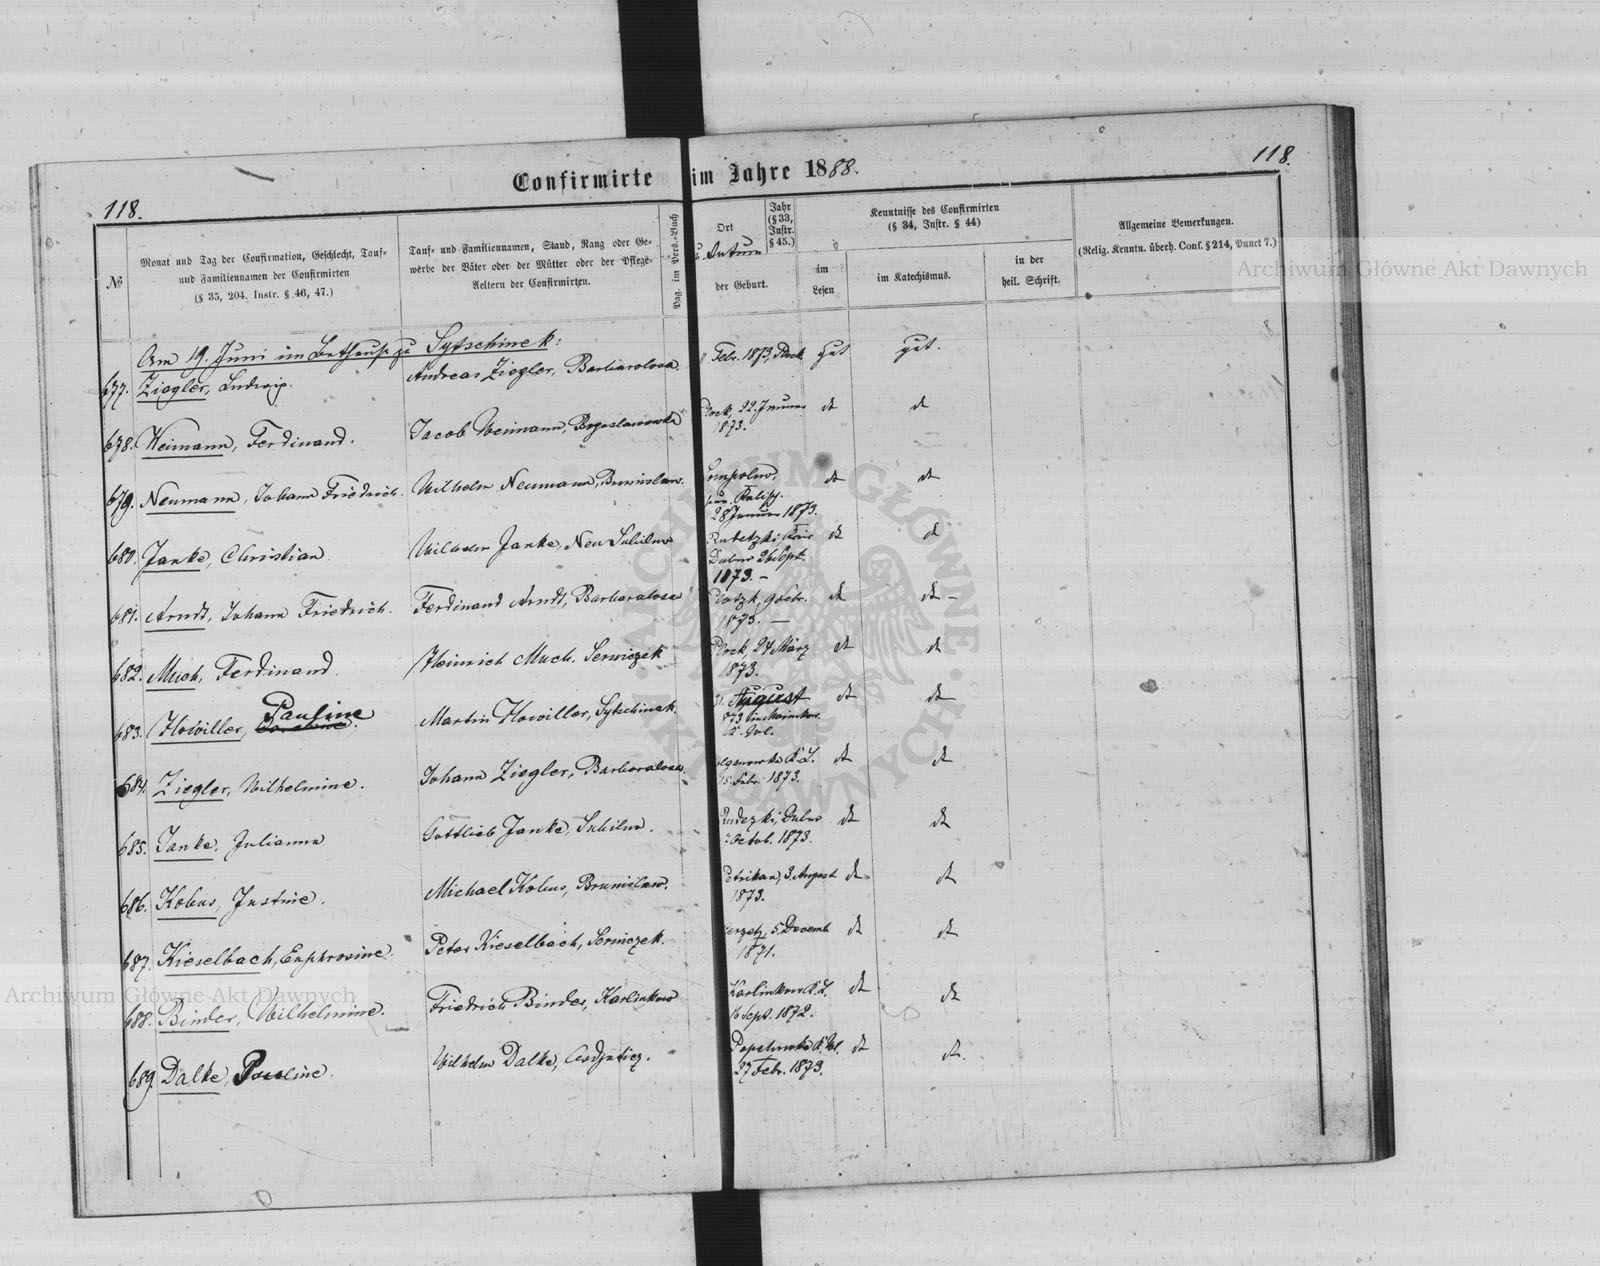 Confirmirte im Jahre 1888.
118.
118.
№
Monat und Tag der Confirmation, Geschlecht, Tauf-
und Familiennamen der Confirmirten
(§ 35, 204. Instr. § 46, 47.)
Tauf- und Familiennamen, Stand, Rang oder Ge-
werbe der Väter oder der Mütter oder der Pflege-
Aeltern der Confirmirten.
Pag. im Pers.-Buch
Ort
u. Datum
der Geburt.
Jahr
(§ 33,
Instr.
§ 45.)
Kenntnisse des Confirmirten
(§ 34, Instr. § 44)
im
Lesen
im Katechismus.
in der
heil. Schrift.
Allgemeine Bemerkungen.
(Relig. Kenntn. überh. Conf. § 214, Punct 7.)
Am 19. Juni im Bethause zu Sytschinek:
677. Ziegler, Ludwig. Andreas Ziegler, Barbarolosa Febr. 1873, Plock gut gut.
678. Weimann, Ferdinand. Jacob Weimann, 22. Januar dt dt
1873.
679. Neumann, Johann Friedrich. Wilhelm Neumann, Bronislaw. dt dt
Kalisch.
28 Januar 1873.
680. Janke, Christian. Wilhelm Janke, Neu dt dt
Dubno 26 Sept.
1873. —
681. Arndt, Johann Friedrich. Ferdinand Arndt, Barbarolosa Plotzk, 9 Febr. dt dt —
1873. —
682. Much, Ferdinand. Heinrich Much, Serniczek Plock, 24 März dt dt
1873.
683. Howiller, Pauline Martin Howiller, Sytschinek. August dt dt
684. Ziegler, Wilhelmine. Johann Ziegler, Barbarolosa. dt dt
Febr. 1873.
685. Janke, Julianna Gottlieb Janke, Dubno dt dt
Octob. 1873.
686. Kobus, Justine. Michael Kobus, Bronislaw. Petrikau, 3. August dt dt
1873.
687. Kieselbach, Euphrosine. Peter Kieselbach, Serniczek. 5. Decemb dt dt
1871.
688. Binder, Wilhelmine. Friedrich Binder, Karlinkow Karlinkow dt dt
16 Sept. 1872.
689. Dalke, Pauline. Wilhelm Dalke, dt dt.
27 Febr. 1873.
ARCHIWUM GŁÓWNE AKT DAWNYCH
Archiwum Główne Akt Dawnych
Archiwum Główne Akt Dawnych